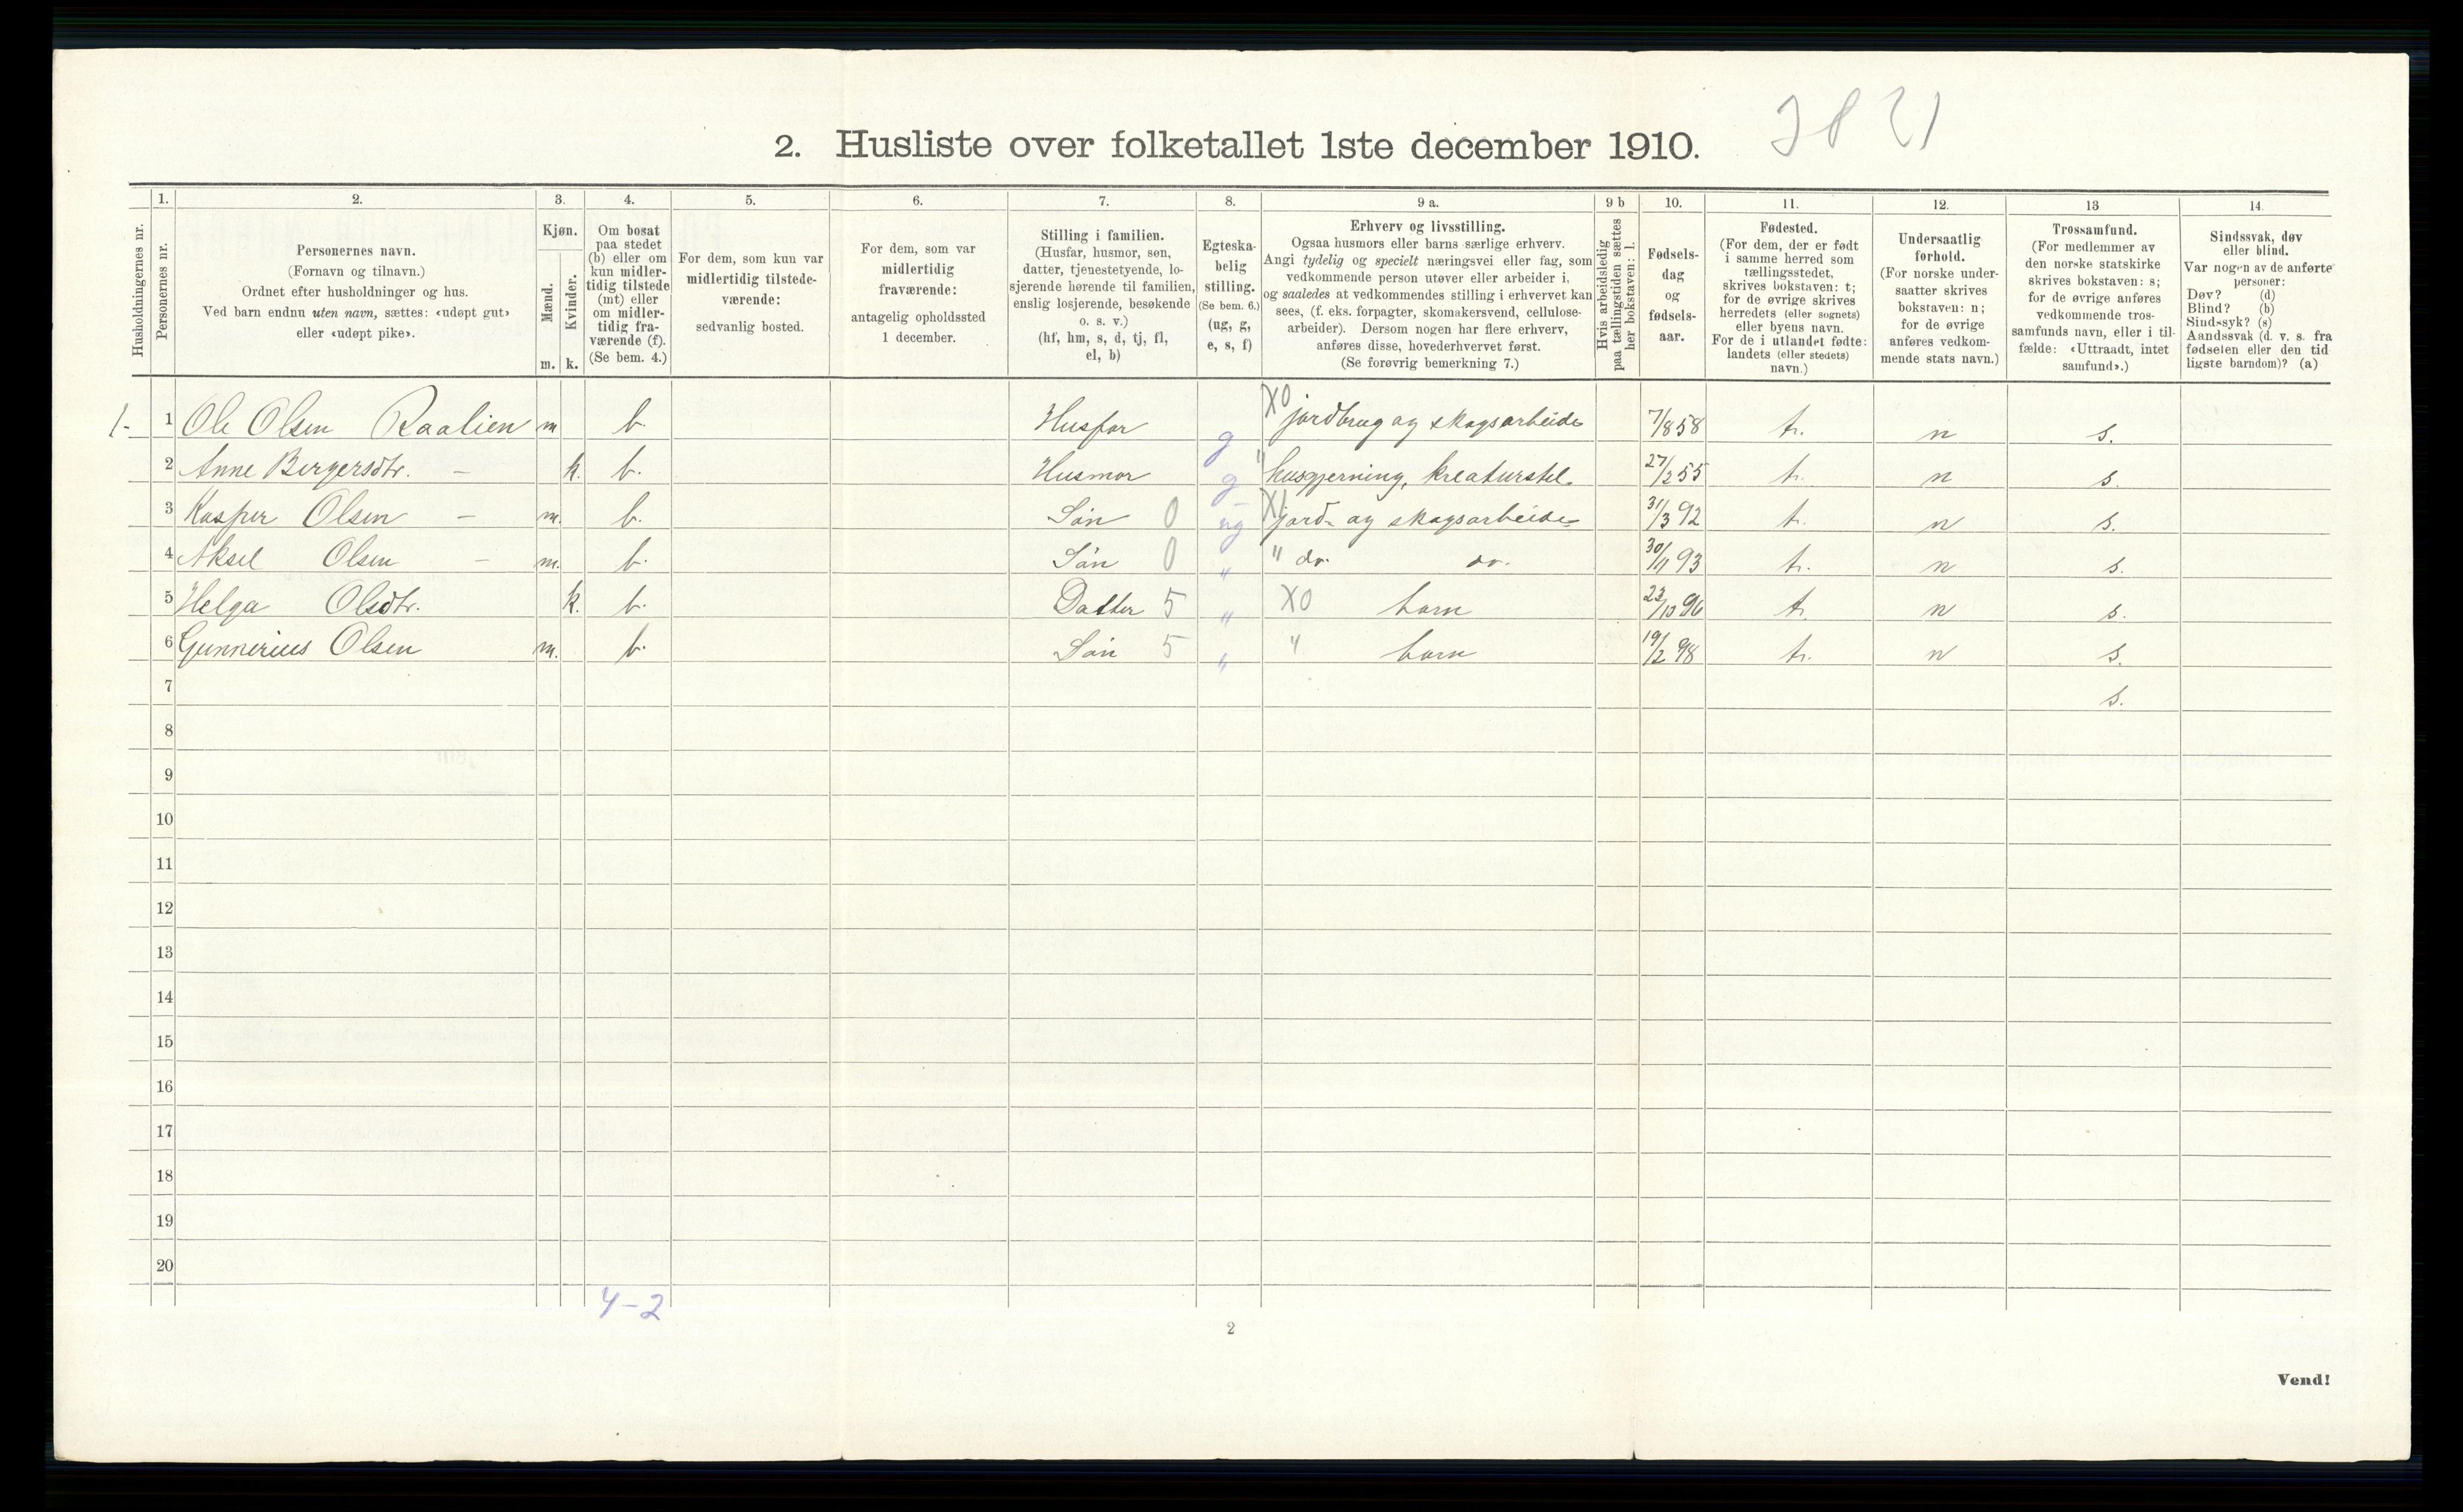 3821
2. Husliste over folketallet 1ste december 1910.
Husholdningernes nr.
1. Personernes nr.
2. Personernes navn. (Fornavn og tilnavn.) Ordnet efter husholdninger og hus. Ved barn endnu uten navn, sættes: «udøpt gut» eller «udøpt pike».
3. Kjøn. Mænd. m. Kvinder. k.
4. Om bosat paa stedet (b) eller om kun midlertidig tilstede (mt) eller om midlertidig fraværende (f). (Se bem. 4.)
5. For dem, som kun var midlertidig tilstedeværende: sedvanlig bosted.
6. For dem, som var midlertidig fraværende: antagelig opholdssted 1 december.
7. Stilling i familien. (Husfar, husmor, søn, datter, tjenestetyende, losjerende hørende til familien, enslig losjerende, besøkende o. s. v.) (hf, hm, s, d, tj, fl, el, b)
8. Egteskabelig stilling. (Se bem. 6.) (ug, g, e, s, f)
9 a. Erhverv og livsstilling. Ogsaa husmors eller barns særlige erhverv. Angi tydelig og specielt næringsvei eller fag, som vedkommende person utøver eller arbeider i, og saaledes at vedkommendes stilling i erhvervet kan sees, (f. eks. forpagter, skomakersvend, cellulosearbeider). Dersom nogen har flere erhverv, anføres disse, hovederhvervet først. (Se forøvrig bemerkning 7.)
9 b Hvis arbeidsledig paa tællingstiden sættes her bokstaven: l.
10. Fødselsdag og fødselsaar.
11. Fødested. (For dem, der er født i samme herred som tællingsstedet, skrives bokstaven: t; for de øvrige skrives herredets (eller sognets) eller byens navn. For de i utlandet fødte: landets (eller stedets) navn.)
12. Undersaatlig forhold. (For norske undersaatter skrives bokstaven: n; for de øvrige anføres vedkommende stats navn.)
13. Trossamfund. (For medlemmer av den norske statskirke skrives bokstaven: s; for de øvrige anføres vedkommende trossamfunds navn, eller i tilfælde: «Uttraadt, intet samfund».)
14. Sindssvak, døv eller blind. Var nogen av de anførte personer: Døv? (d) Blind? (b) Sindssyk? (s) Aandssvak (d. v. s. fra fødselen eller den tidligste barndom)? (a)
1- 1 Ole Olsen Raalien m b. Husfar g X0 jordbrug og skogsarbeide 7/8 58 t. n s.
2 Anne Bergersdtr. – k. b. Husmor g " husgjerning, kreaturstel 27/2 55 t. n s.
3 Kasper Olsen – m. b. Søn 0 ug X1 jord- og skogsarbeide 31/3 92 t. n s.
4 Aksel Olsen – m. b. Søn 0 " " do. do. 30/11 93 t. n s.
5 Helga Olsdtr. k. b. Datter 5 " X0 barn 23/10 96 t. n s.
6 Gunnerius Olsen m. b. Søn 5 " " barn 19/2 98 t. n s.
7 s.
8
9
10
11
12
13
14
15
16
17
18
19
20
4-2
2
Vend!